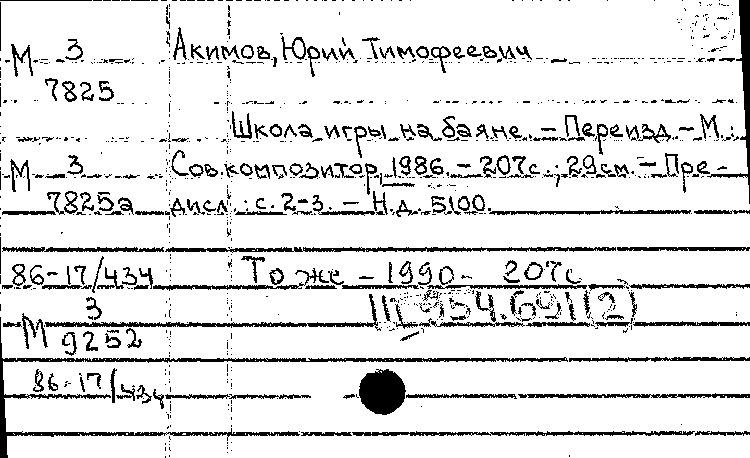 М 3 Акимов, Юрий Тимофеевич
7825
Школа игры на баяне. – Переизд – М.:
М 3 Сов.композитор, 1986. – 207с.; 29см. – Пре-
7825а дисл.: с. 2-3. – Н.д. 5100.
86-17/434 То же – 1990 – 207с
3 Ш 954.691(2)
М 9252
86-17/434